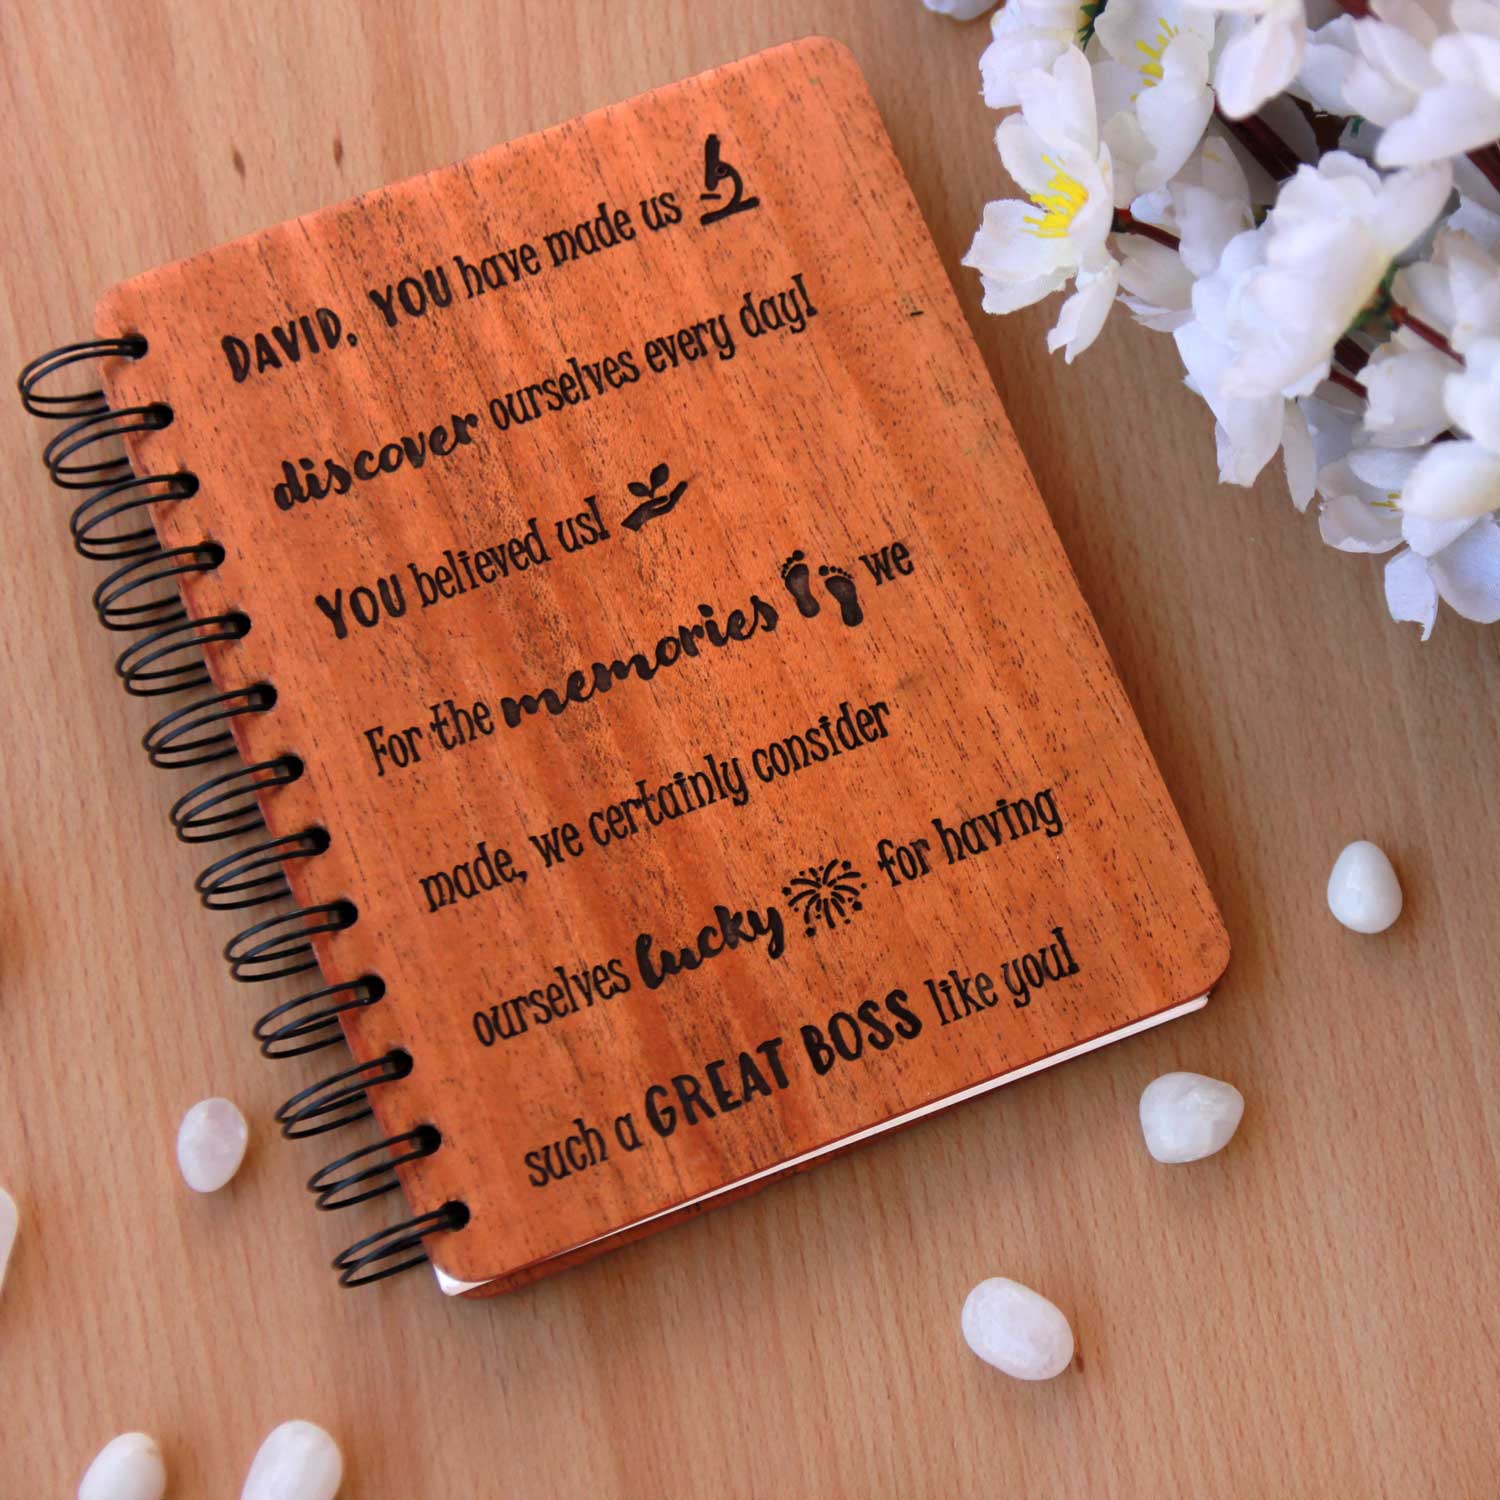 DAVID, YOU have made us
discover ourselves every day!
YOU believed us!
For the memories we
made, we certainly consider
ourselves lucky for having
such a GREAT BOSS like you!